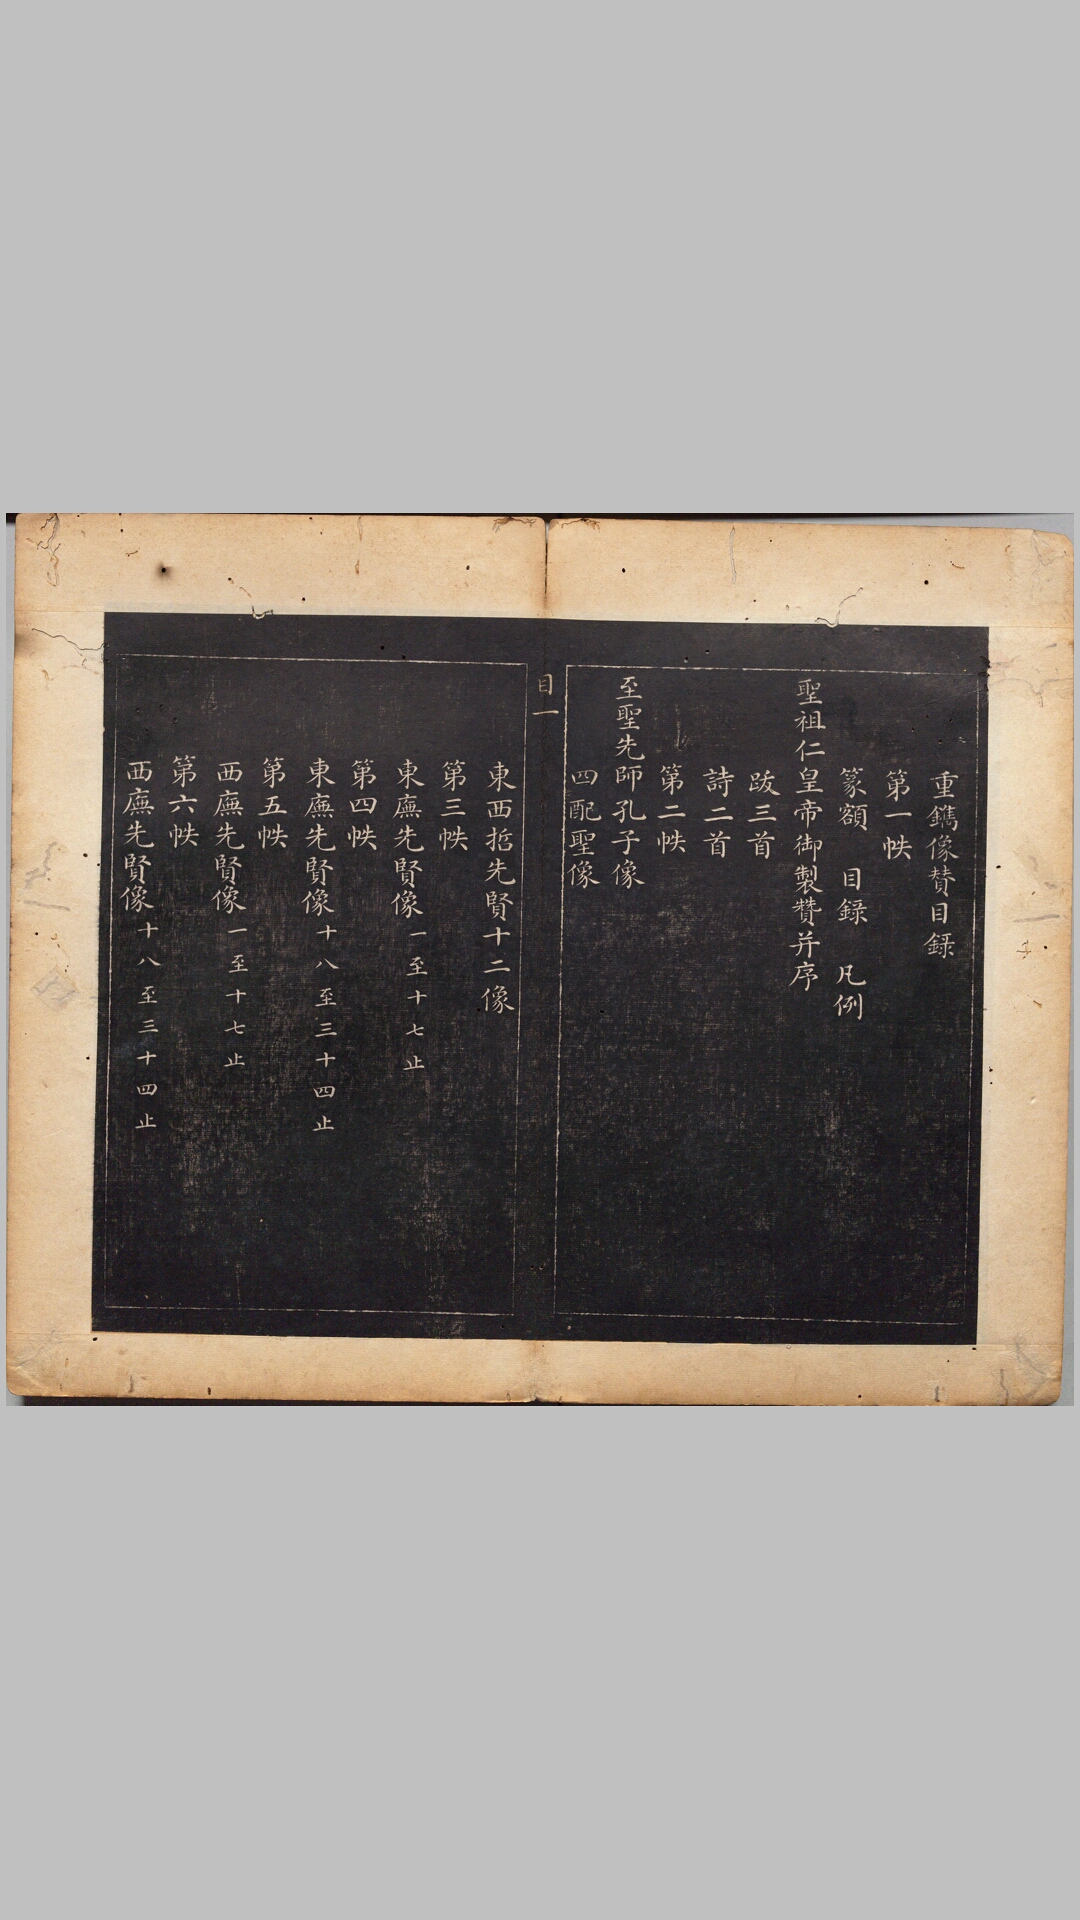 重鐫像贊目録
第一帙
篆額　目録　凡例
聖祖仁皇帝御製贊并序
跋三首
詩二首
第二帙
至聖先師孔子像
四配聖像
目一
東西哲先賢十二像
第三帙
東廡先賢像一至十七止
第四帙
東廡先賢像十八至三十四止
第五帙
西廡先賢像一至十七止
第六帙
西廡先賢像十八至三十四止